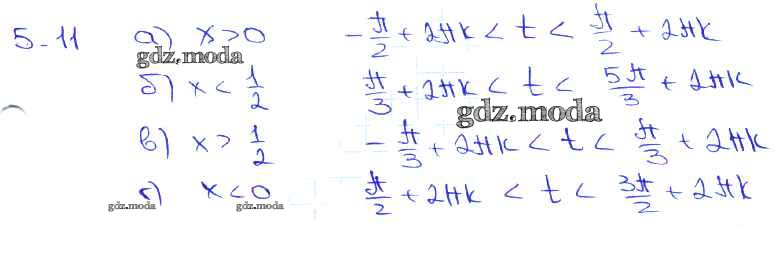 5-11 а) x>0 -π/2 + 2πk < t < π/2 + 2πk
gdz.moda
б) x < 1/2 π/3 + 2πk < t < 5π/3 + 2πk
gdz.moda
в) x > 1/2 -π/3 + 2πk < t < π/3 + 2πk
г) x<0 π/2 + 2πk < t < 3π/2 + 2πk
gdz.moda gdz.moda